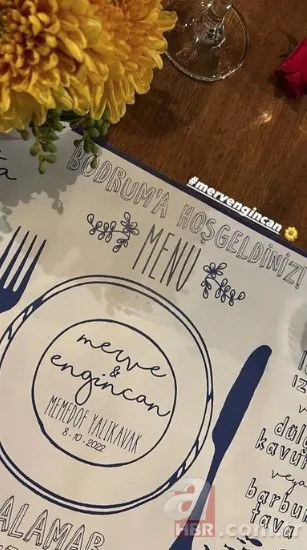 #mervengincan
BODRUM'A HOŞGELDİNİZ!
MENU
merve
&
engincan
MEMEDOF YALIKAVAK
8.10.2022
düğ
kavu
veya
barbun
tava
ALAMAR
aHBR.com.tr